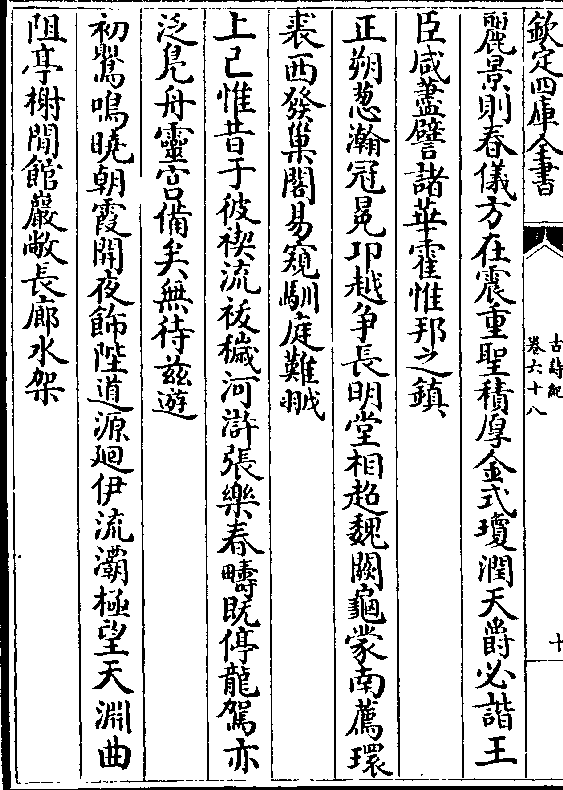 欽定四庫全書
古詩紀
卷六十八
十
麗景則春儀方在震重聖積厚金式瓊潤天爵必諧王
臣咸藎譬諸華霍惟邦之鎮
正朔葱瀚冠冕卭越爭長明堂相趨魏闕龜蒙南薦環
裘西發巢閣易窺馴庭難狘
上巳惟昔于彼禊流祓穢河滸張樂春疇既停龍駕亦
泛鳧舟靈宫備矣無待兹遊
初鸎鳴曉朝霞開夜飾陛道源廻伊流灞極望天淵曲
阻亭榭閒館巖敞長廊水架